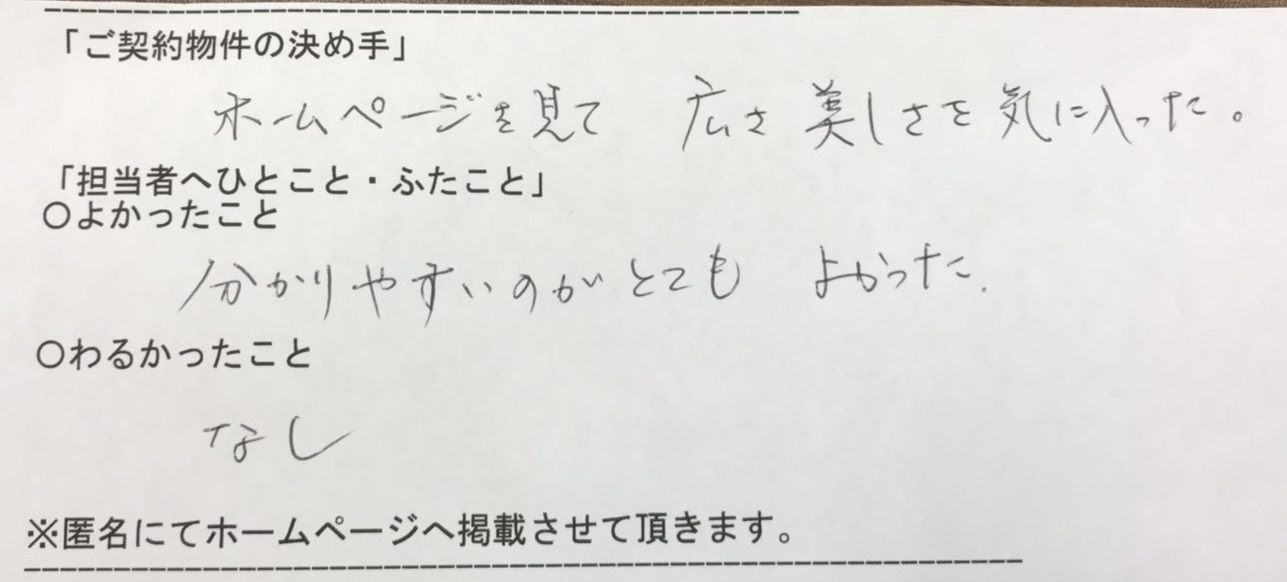 「ご契約物件の決め手」
ホームページを見て 広さ 美しさを気に入った。
「担当者へひとこと・ふたこと」
〇よかったこと
分かりやすいのがとても よかった.
〇わるかったこと
なし
※匿名にてホームページへ掲載させて頂きます。